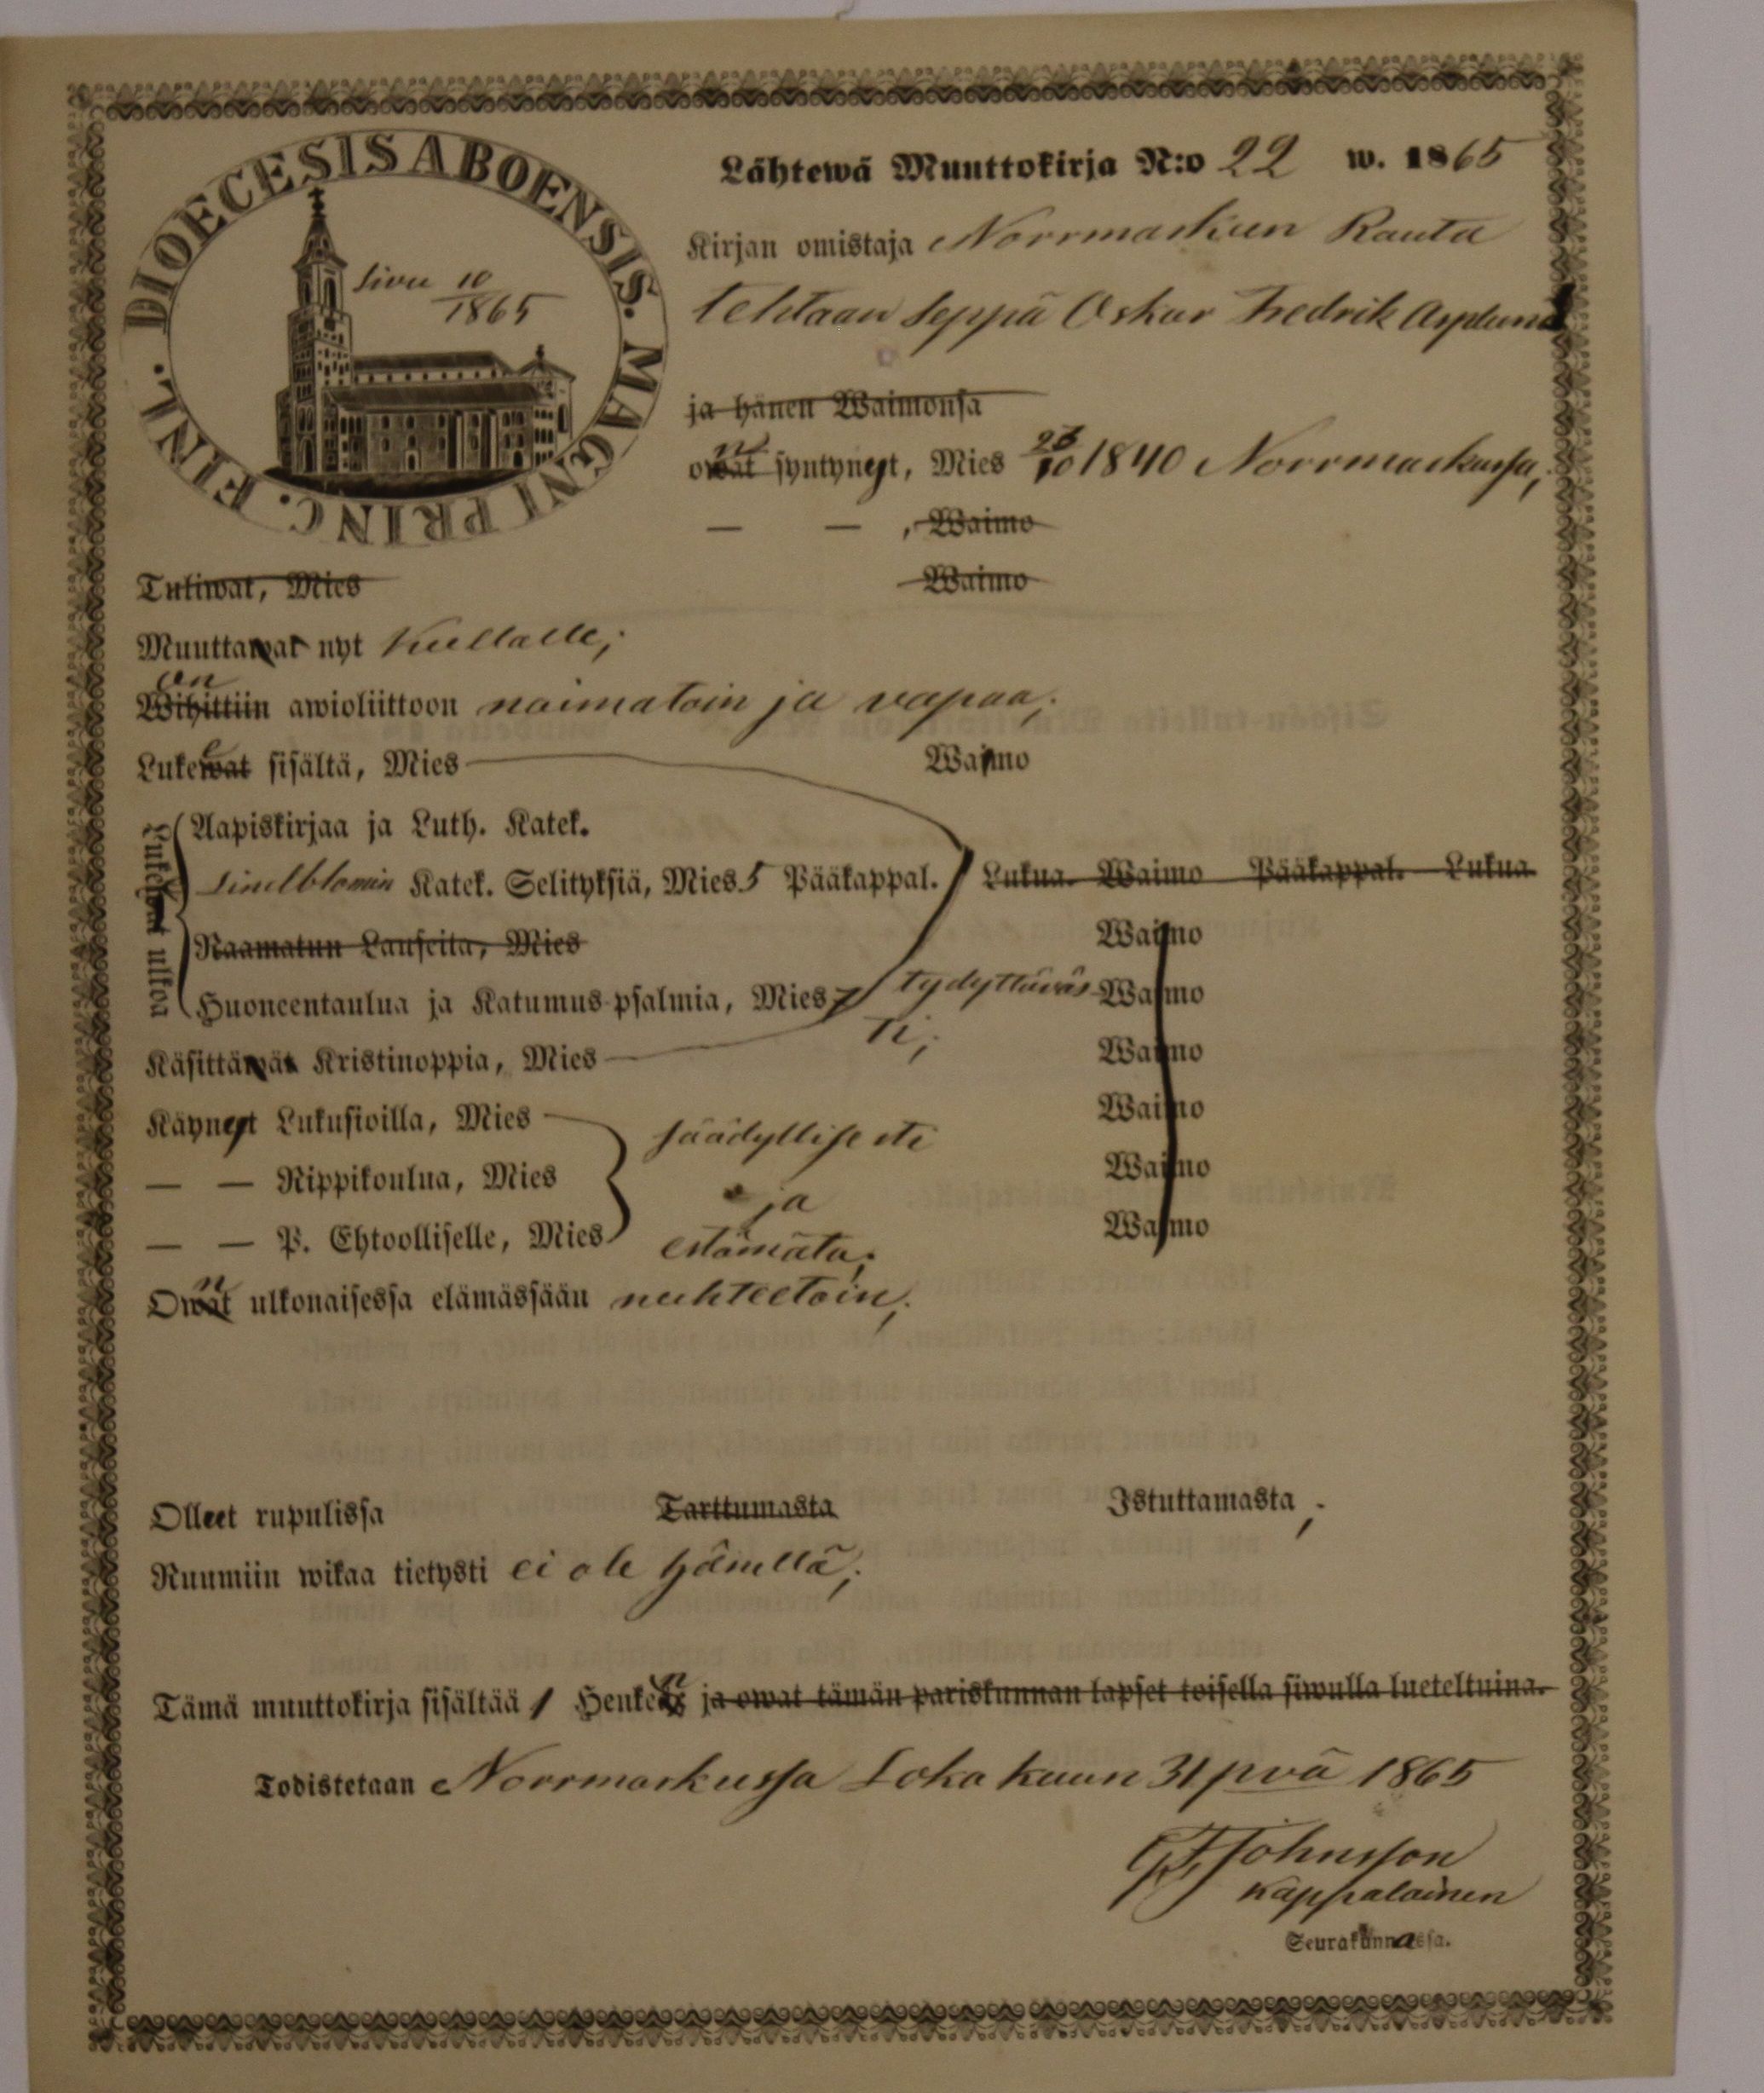 DIOECESIS ABOENSIS. MAGNI PRINC. FINL.
Sivu 10
1865
Lähtewä Muuttokirja N:o 22 w. 1865
Kirjan omistaja Norrmarkun Rauta
tehtaan Seppä Oskar Fredrik Asplund
ja hänen Waimonsa
on syntynyt, Mies 10 1840 Norrmarkussa,
— — , Waimo
Tuliwat, Mies Waimo
Muuttaa nyt Kullalle;
on
Wihittiin awioliittoon naimatoin ja vapaa;
Lukee sisältä, Mies Waimo
Lukee ulkoa
Aapiskirjaa ja Luth. Katek.
Lindblomin Katek. Selityksiä, Mies 5 Pääkappal. Lukua. Waimo Pääkappal. Lukua.
Raamatun Lauseita, Mies Waimo
Huoneentaulua ja Katumus-psalmia, Mies tydyttäväs Waimo
ti;
Käsittää Kristinoppia, Mies Waimo
Käynyt Lukusioilla, Mies säädyllisesti Waimo
— — Rippikoulua, Mies ja Waimo
— — P. Ehtoolliselle, Mies estämätä; Waimo
On ulkonaisessa elämässään nuhteetoin;
Ollut rupulissa Tarttumasta Istuttamasta;
Ruumiin wikaa tietysti ei ole hänellä;
Tämä muuttokirja sisältää 1 Henken ja owat tämän pariskunnan lapset toisella siwulla lueteltuina.
Todistetaan Norrmarkussa Loka kuun 31 pvä 1865
Johnsson
Kappalainen
Seurakunnassa.